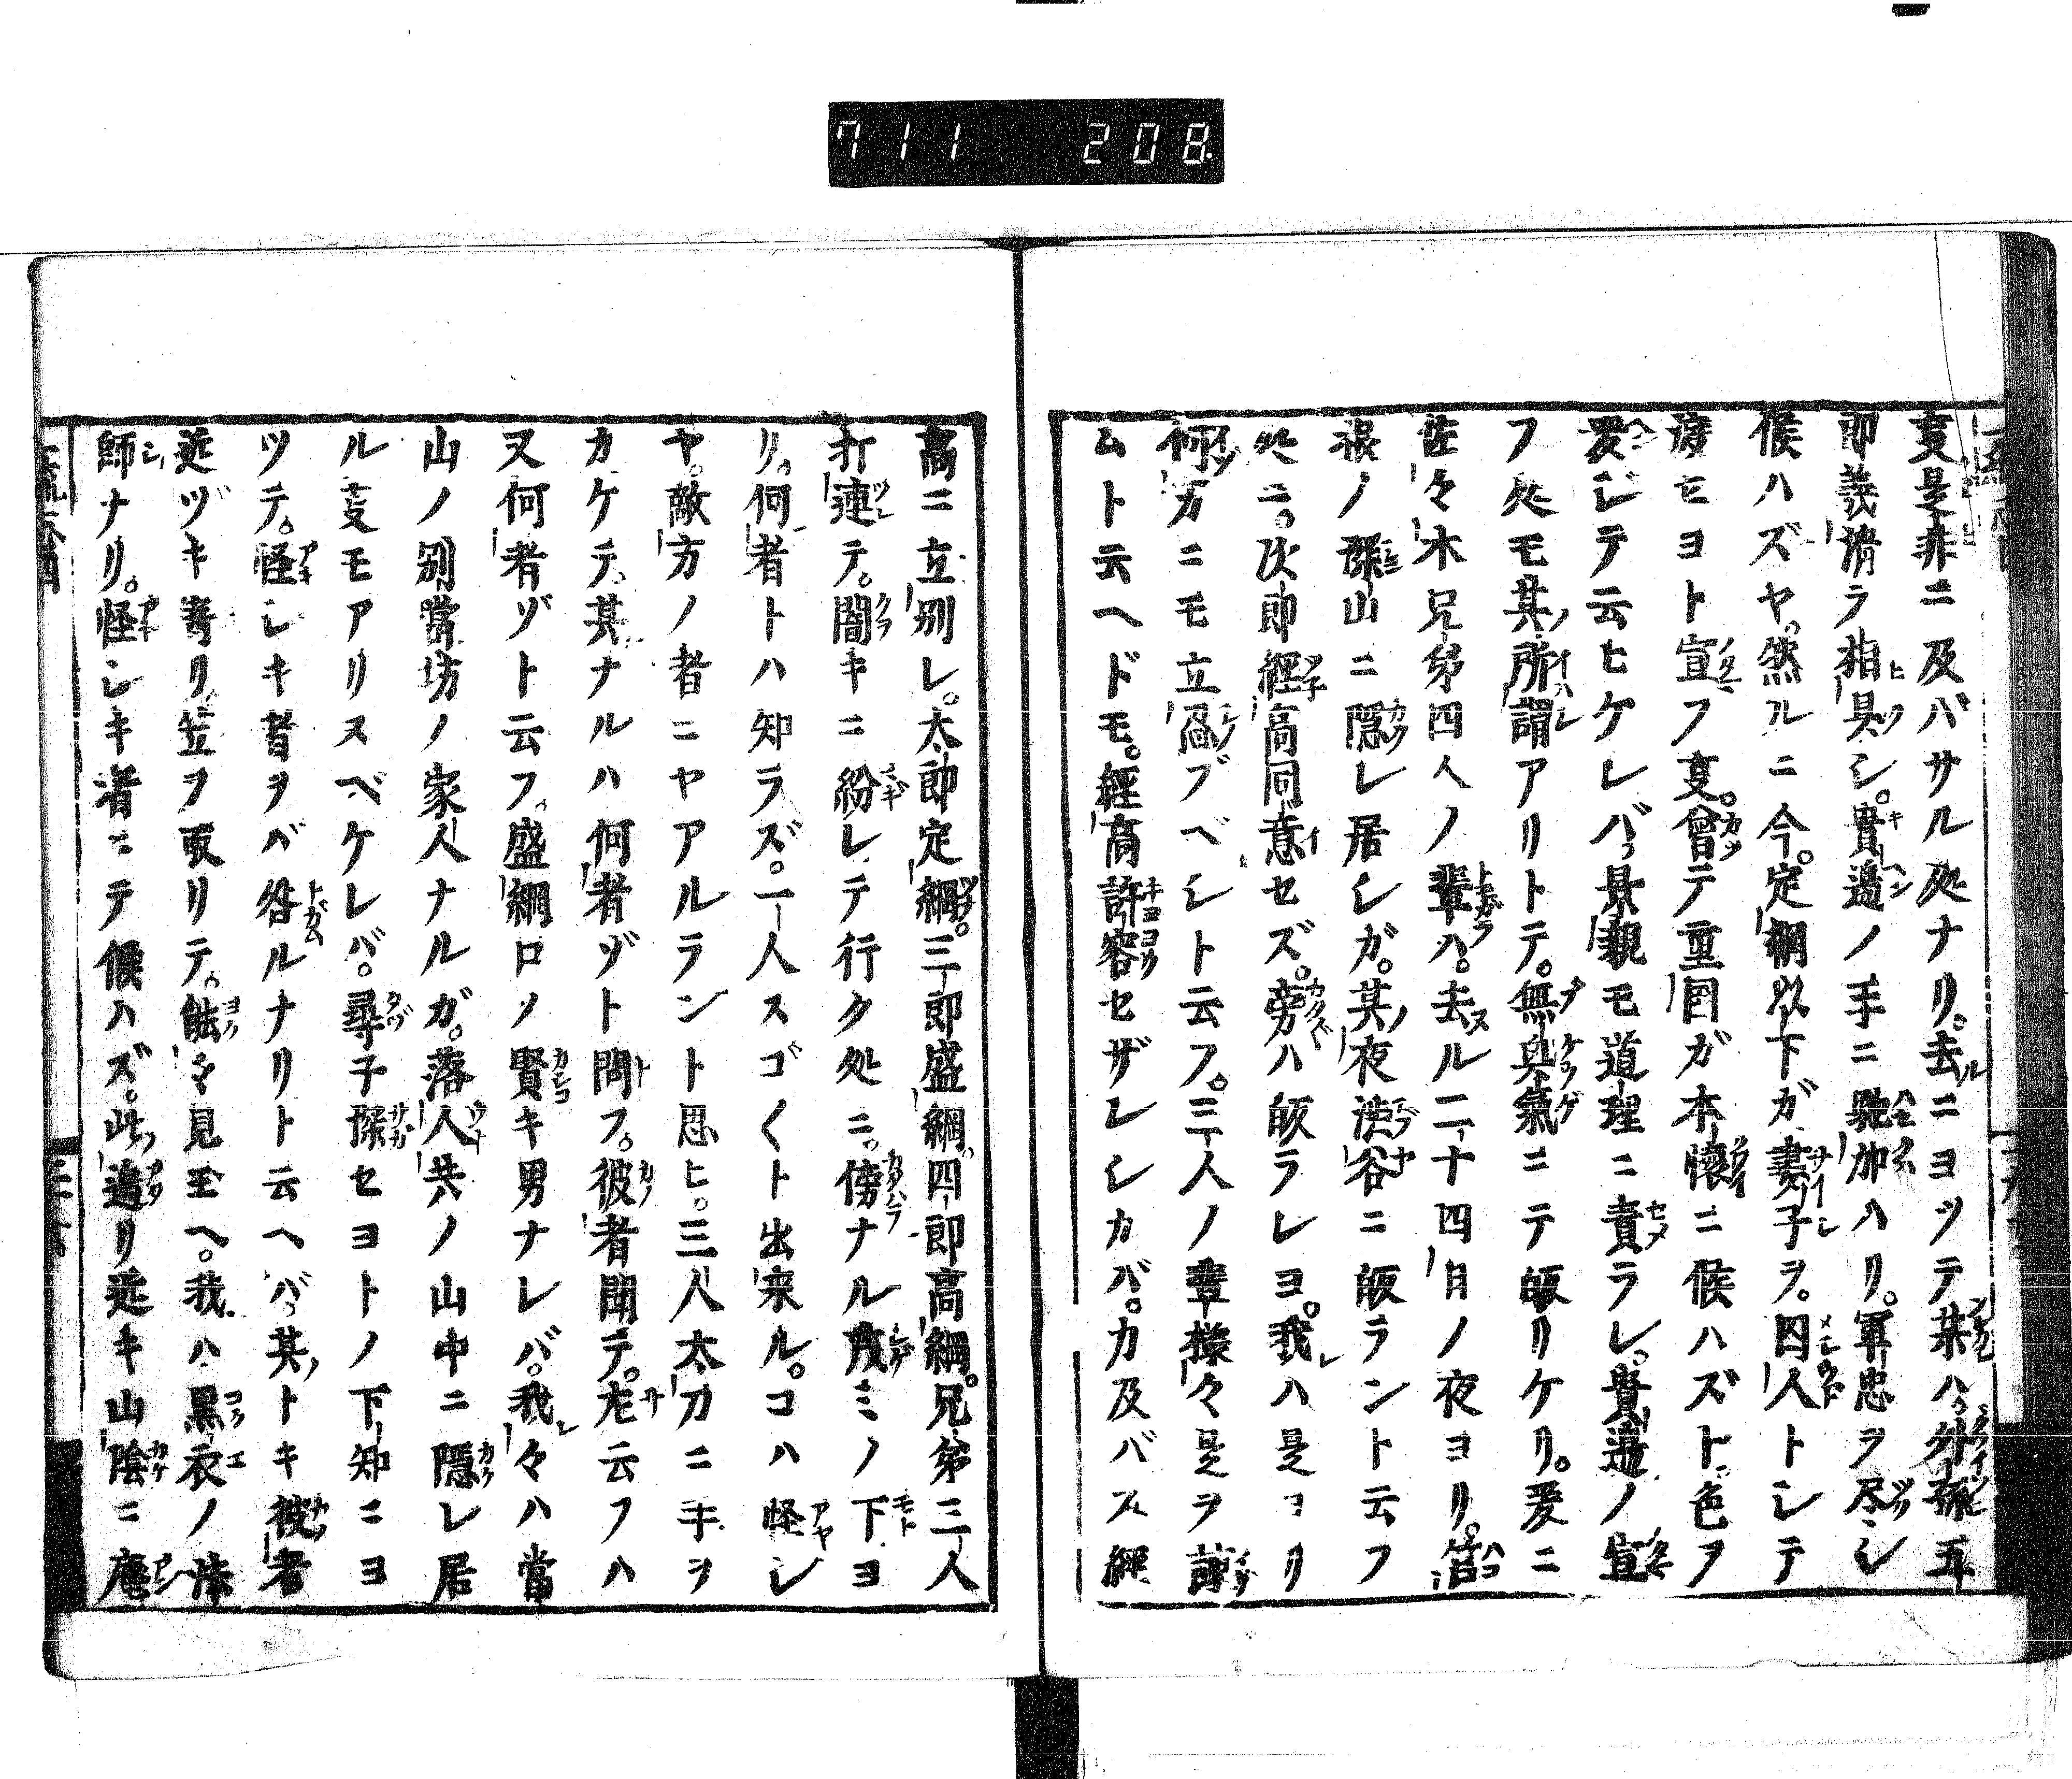 711 208.
亥是非ニ及バサル処ナリ。去ニヨツテ某ハ外孫五
郎義清ヲ相具シ。貴邉ノ手ニ馳加ハリ。軍忠ヲ尽シ
候ハズヤ。然ルニ今。定綱以下ガ妻子ヲ。囚人トシテ
渡セヨト宣フ亥。曾テ重国ガ本懐ニ候ハズト。色ヲ
変ジテ云ヒケレバ。景親モ道理ニ責ラレ。貴邉ノ宣
フ処モ其所謂アリトテ。無興氣ニテ皈リケリ。爰ニ
佐々木兄弟四人ノ輩ハ。去ル二十四日ノ夜ヨリ。筥
根ノ深山ニ隠レ居シガ。其夜渋谷ニ皈ラント云フ
処ニ。次郎經高同意セズ。旁ハ皈ラレヨ。我ハ是ヨリ
何方ニモ立忍ブベシト云フ。三人ノ輩様々是ヲ諫
ムト云ヘドモ。經高許容セザレシカバ。力及バス經
高ニ立別レ。太郎定綱。三郎盛綱。四郎高綱。兄弟三人
打連テ。闇キニ紛レテ行ク処ニ。傍ナル茂ミノ下ヨ
リ。何者トハ知ラズ。一人スゴ〱ト出来ル。コハ怪シ
ヤ。敵方ノ者ニヤアルラント思ヒ。三人太刀ニ手ヲ
カケテ。某ナルハ何者ゾト問フ。彼者聞テ。左云フハ
又何者ゾト云フ。盛綱ロノ賢キ男ナレバ。我々ハ當
山ノ別當坊ノ家人ナルガ。落人共ノ山中ニ隠レ居
ル亥モアリヌベケレバ。尋子探セヨトノ下知ニヨ
ツテ。怪シキ者ヲバ咎ルナリト云ヘバ。其トキ彼者
近ヅキ寄リ。笠ヲ取リテ。能々見玉ヘ。我ハ黒衣ノ法
師ナリ。怪シキ者ニテ候ハズ。此邉リ近キ山陰ニ庵